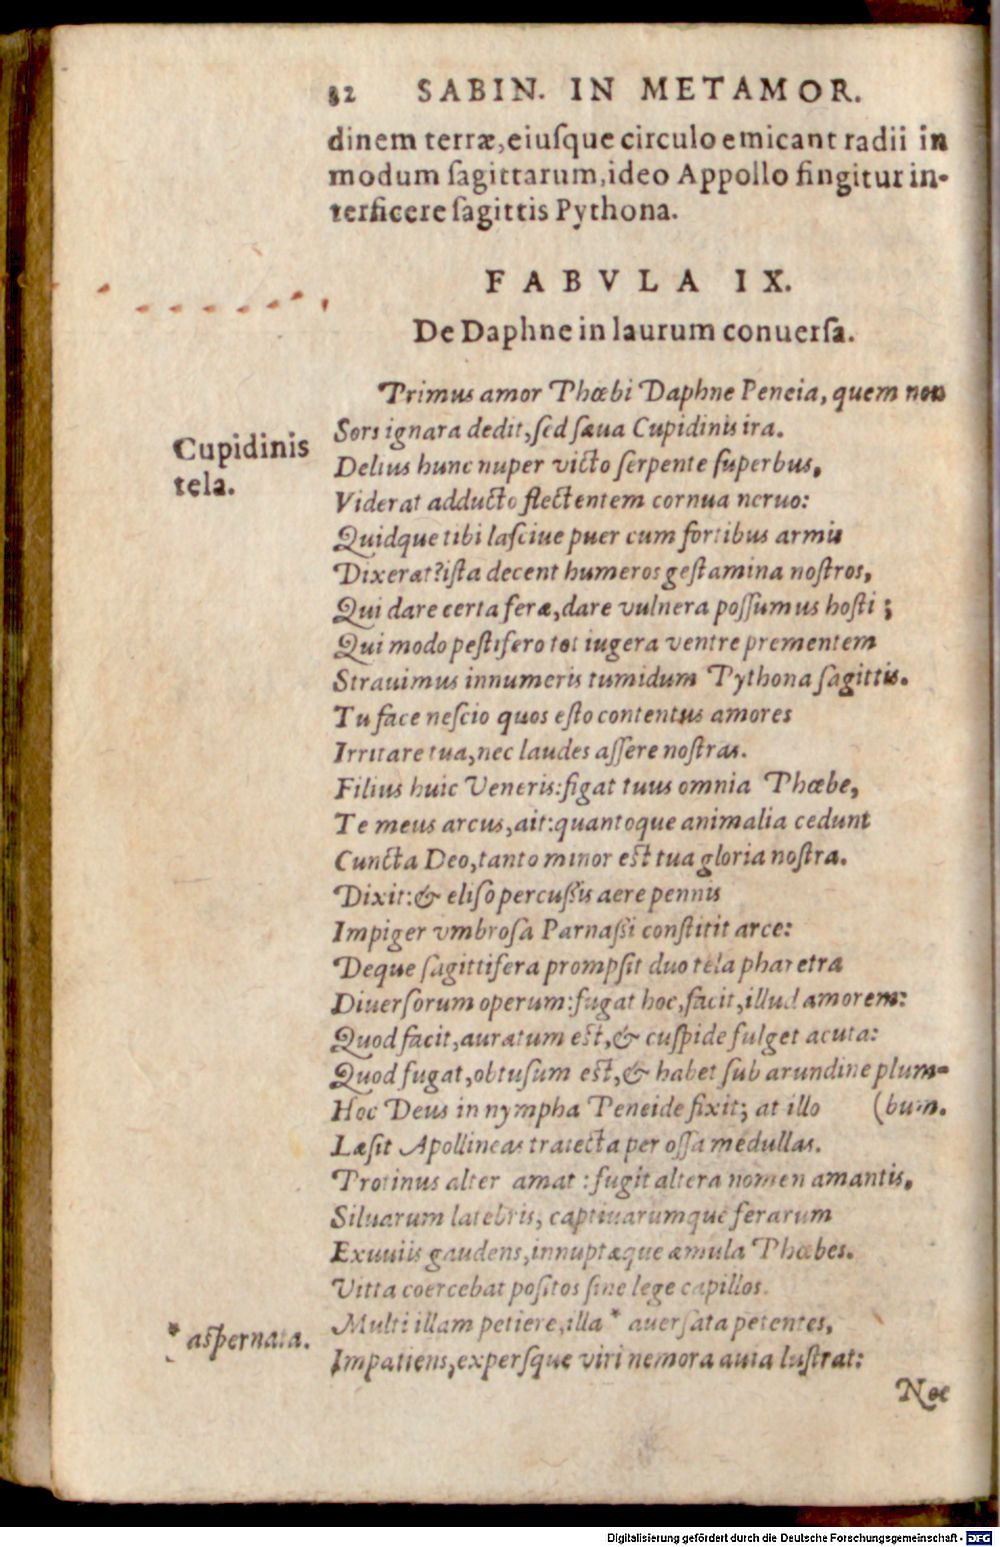 82 SABIN. IN METAMOR.
dinem terræ, eiuſque circulo emicant radii in
modum ſagittarum, ideo Appollo fingitur in-
terficere ſagittis Pythona.
FABVLA IX.
De Daphne in laurum conuerſa.
Primus amor Phœbi Daphne Peneia, quem non
Sors ignara dedit, ſed ſæua Cupidinis ira.
Cupidinis
tela.
Delius hunc nuper victo ſerpente ſuperbus,
Viderat adducto flectentem cornua neruo:
Quidque tibi laſciue puer cum fortibus armis
Dixerat? iſta decent humeros geſtamina noſtros,
Qui dare certa feræ, dare vulnera poſſumus hoſti;
Qui modo peſtifero tot iugera ventre prementem
Strauimus innumeris tumidum Pythona ſagittis.
Tu face neſcio quos eſto contentus amores
Irritare tua, nec laudes aſſere noſtras.
Filius huic Veneris: figat tuus omnia Phœbe,
Te meus arcus, ait: quantoque animalia cedunt
Cuncta Deo, tanto minor est tua gloria noſtra.
Dixit: & eliſo percuſſis aere pennis
Impiger vmbroſa Parnaſſi conſtitit arce:
Deque ſagittifera prompſit duo tela pharetra
Diuerſorum operum: fugat hoc, facit, illud amorem:
Quod facit, auratum est, & cuſpide fulget acuta:
Quod fugat, obtuſum est, & habet ſub arundine plum-
Hoc Deus in nympha Peneide fixit; at illo (bum.
Læſit Apollineas traiecta per oſſa medullas.
Protinus alter amat: fugit altera nomen amantis,
Siluarum latebris, captiuarumque ferarum
Exuuiis gaudens, innuptæque æmula Phœbes.
Vitta coercebat poſitos ſine lege capillos.
Multi illam petiere, illa * auerſata petentes,
* aſpernata.
Impatiens, experſque viri nemora auia luſtrat:
Nec
Digitalisierung gefördert durch die Deutsche Forschungsgemeinschaft - DFG